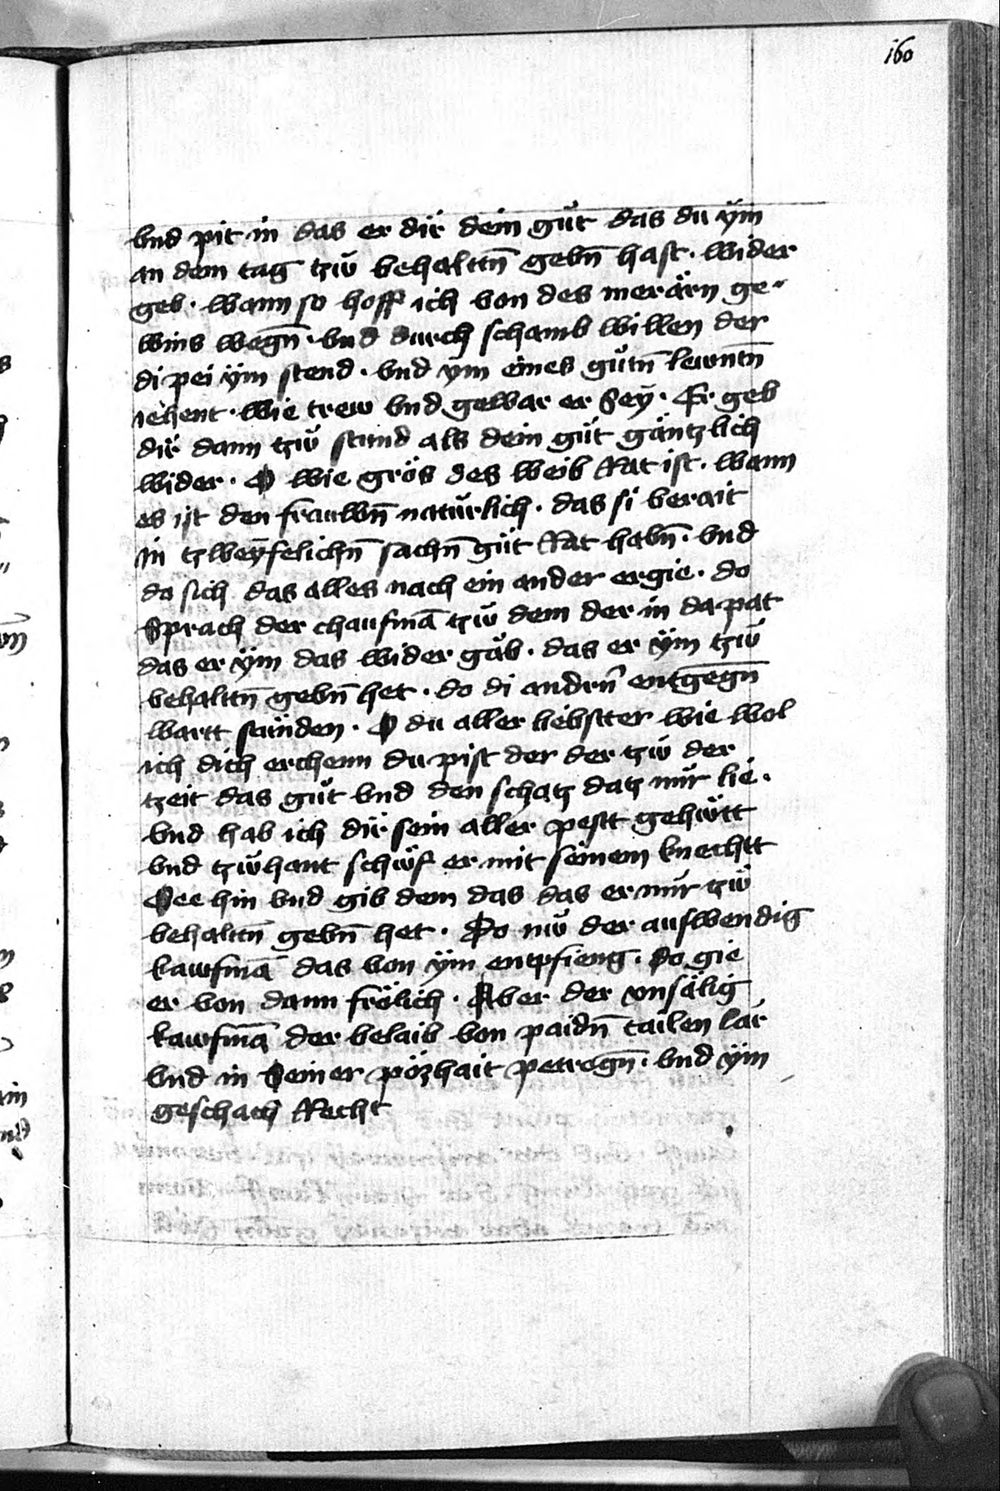 160
vnd pit in das er dir dein gůt das du ÿm
an dem tag tzů behalttn̄ gebn̄ hast · wider
geb · wann so hoff ich von des merärn ge-
wins wegn̄ · vnd durch schamb willen der
di pei ÿm stend · vnd ym eines gůtn̄ lewntn̄
iehent · wie trew vnd gewar er seÿ · Er geb
dir dann tzů stund als dein gůt gäntzlich
wider · O wie grös des weib Rat ist · wann
es ist den frauwn̄ natürlich · das si berait
in tzweÿfelichn̄ sachn̄ gůt Rat habn̄ · vnd
do sich das alles nach ein ander ergie · do
Sprach der chaufmā tzů dem der in da pat
das er ÿm das wider gäb · das er ÿm tzů
behalttn̄ gebn̄ het · do di andrn̄ entgegn̄
wartt stůnden · O du aller liebster wie wol
ich dich erchenn du pist der der tzů der
tzeit das gůt vnd den schatz datz mir lie ·
vnd hab ich dir sein aller pestt gehůtt
vnd tzůhant schůf er mit seinem knechtt
Gee hin vnd gib dem das das er mir tzů
behalttn̄ gebn̄ het · Do nů der auswendig
kawfmā das von ÿm entpfieng · So gie
er von dann frölich · Aber der vnsälig
kawfmā der belaib von paidn̄ tailen lär
vnd in seiner pözhait petrogn̄ · vnd ÿm
geschach Recht